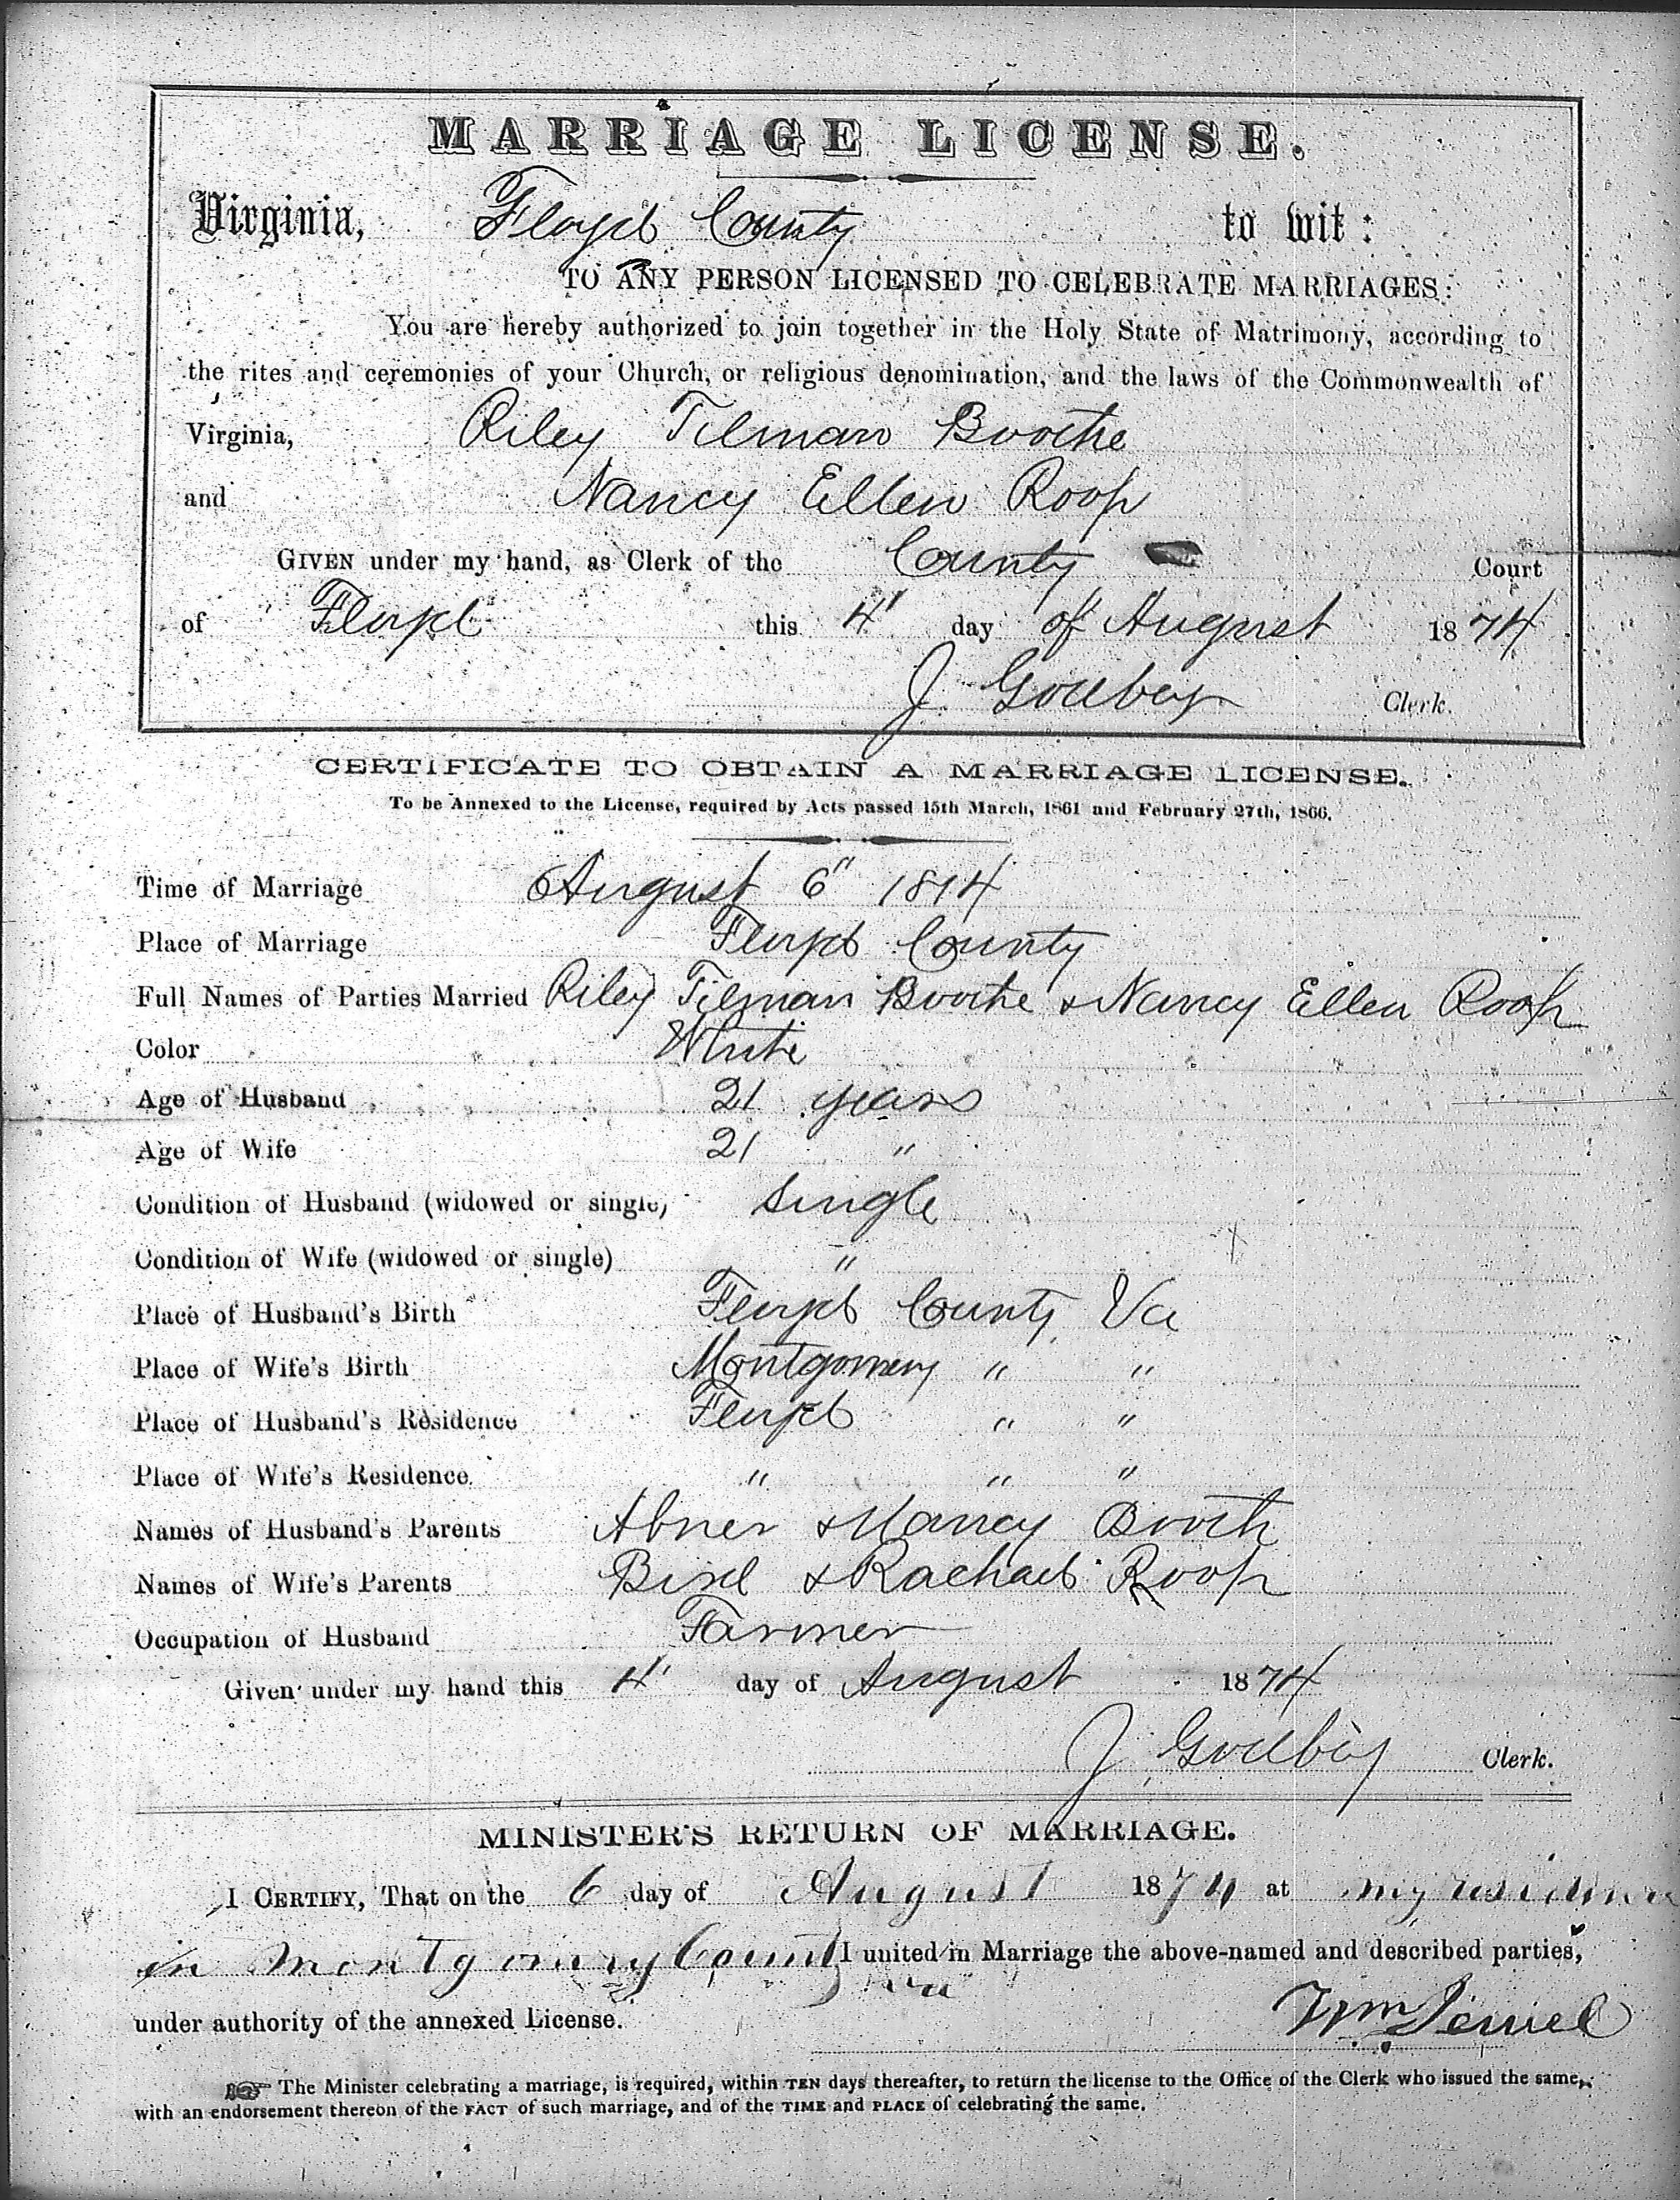 MARRIAGE LICENSE.
Virginia, Floyd County to wit:
TO ANY PERSON LICENSED TO CELEBRATE MARRIAGES:
You are hereby authorized to join together in the Holy State of Matrimony, according to
the rites and ceremonies of your Church, or religious denomination, and the laws of the Commonwealth of
Virginia, Riley Tilman Boothe
and Nancy Ellen Roop
GIVEN under my hand, as Clerk of the County Court
of Floyd this 4" day of August 1874
J Godbey Clerk.
CERTIFICATE TO OBTAIN A MARRIAGE LICENSE.
To be Annexed to the License, required by Acts passed 15th March, 1861 and February 27th, 1866.
Time of Marriage August 6" 1874
Place of Marriage Floyd County
Full Names of Parties Married Riley Tilman Boothe & Nancy Ellen Roop
Color White
Age of Husband 21 years
Age of Wife 21 "
Condition of Husband (widowed or single) Single
Condition of Wife (widowed or single) "
Place of Husband's Birth Floyd County Va
Place of Wife's Birth Montgomery " "
Place of Husband's Residence Floyd " "
Place of Wife's Residence. " " "
Names of Husband's Parents Abner & Nancy Booth
Names of Wife's Parents & Rachael Roop
Occupation of Husband Farmer
Given under my hand this 4' day of August 1874
J Godbey Clerk.
MINISTER'S RETURN OF MARRIAGE.
I CERTIFY, That on the 6 day of August 1874 at my residence
in Montgomery County va I united in Marriage the above-named and described parties,
under authority of the annexed License. Wm
The Minister celebrating a marriage, is required, within TEN days thereafter, to return the license to the Office of the Clerk who issued the same,
with an endorsement thereon of the FACT of such marriage, and of the TIME and PLACE of celebrating the same.